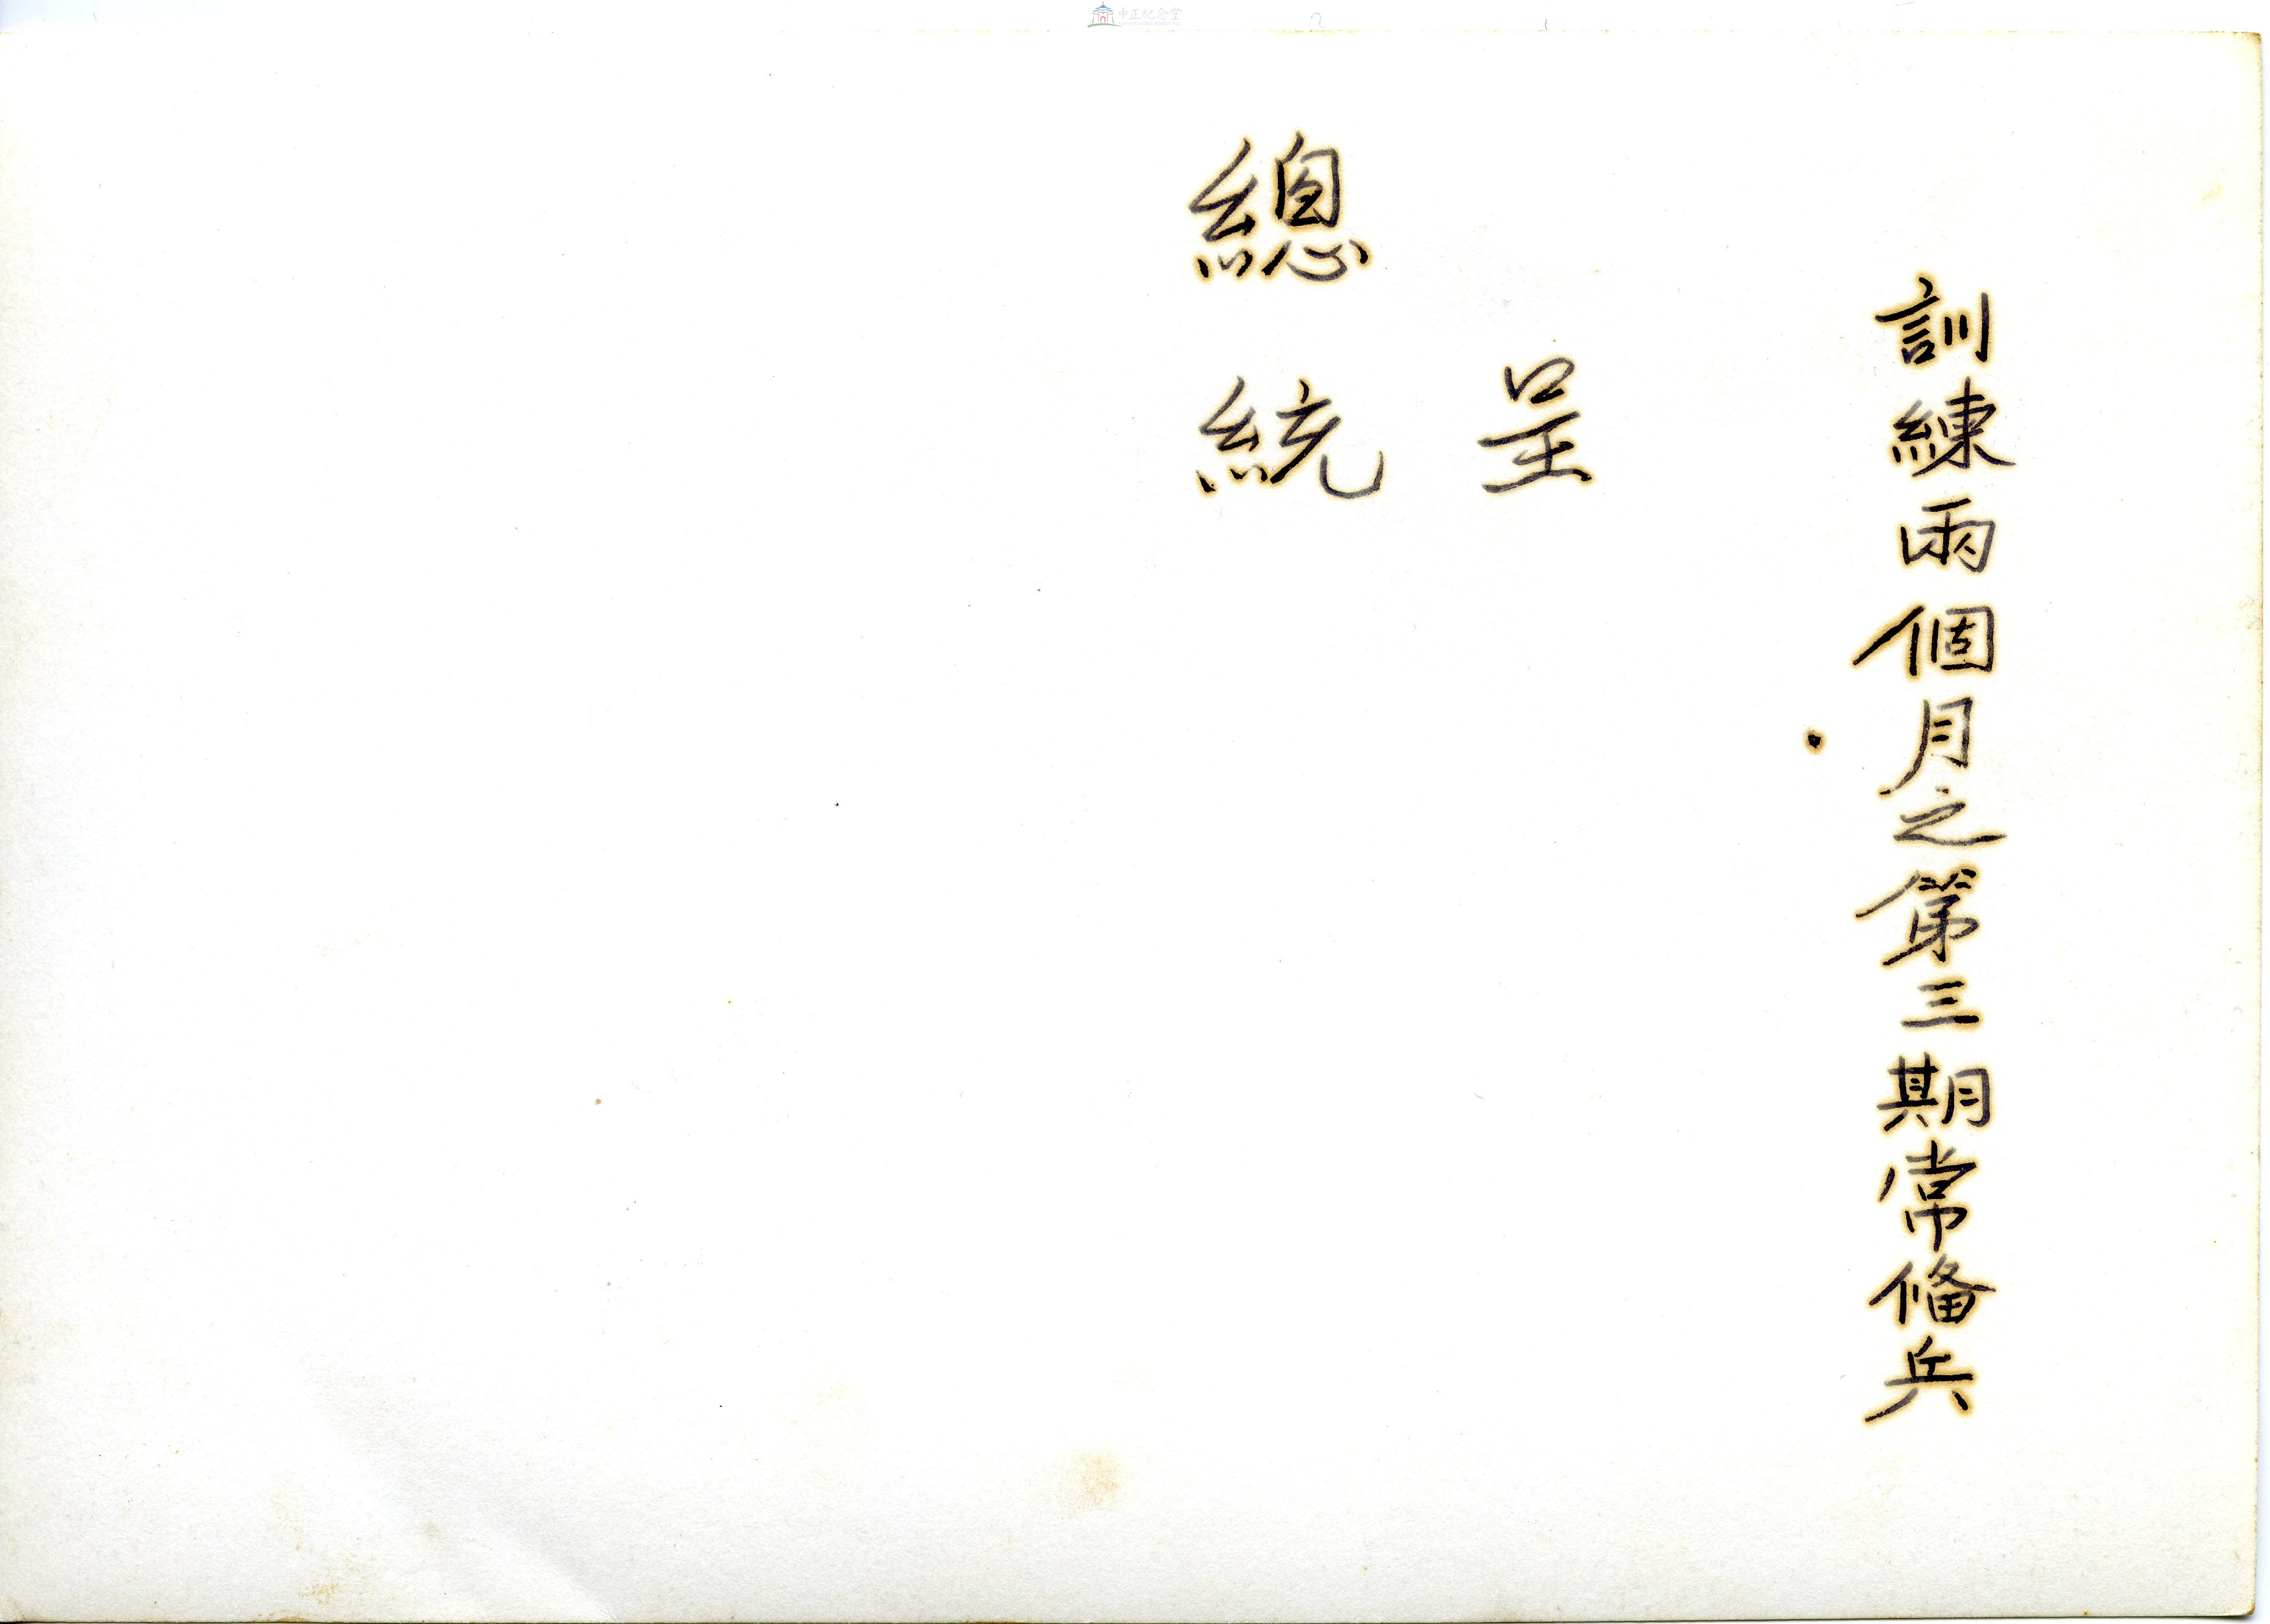 訓練兩個月之第三期常備兵
呈
總統
中正紀念堂